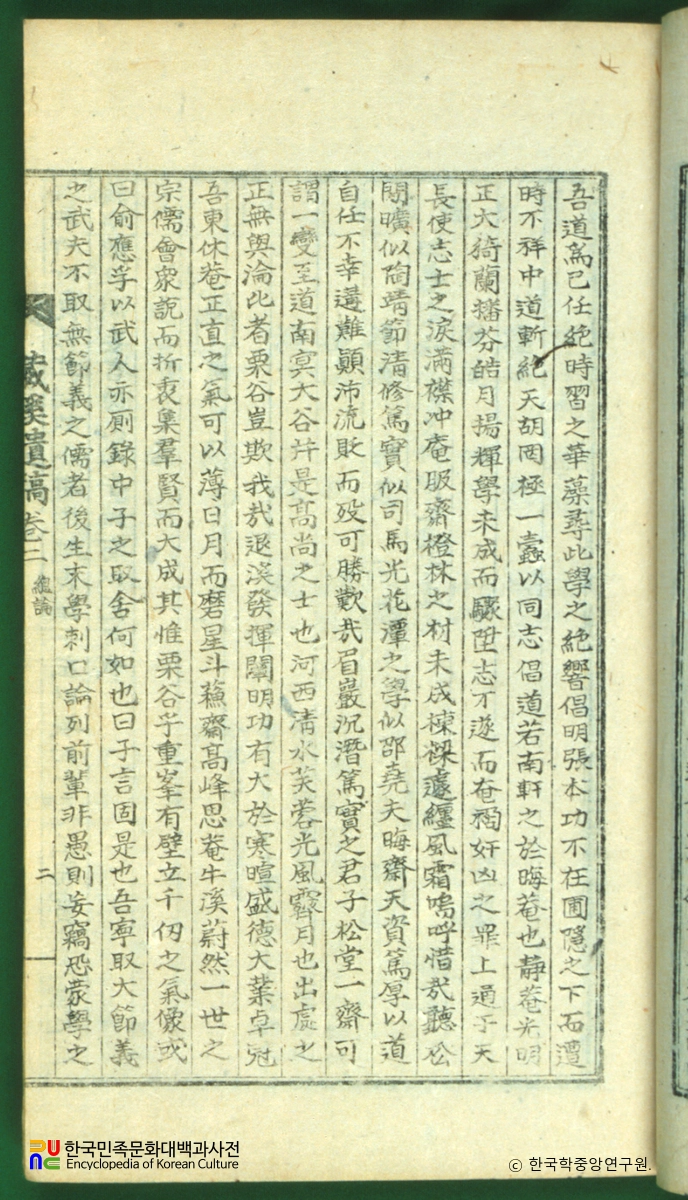 吾道爲已任絶時習之華藻尋此學之絶響倡明張本功不在圃隱之下而遭
時不祥中道斬絶天胡罔極一蠹以同志倡道若南軒之於晦菴也靜菴光明
正大猗蘭播芬皓月揚輝學未成而驟陞志才遂而奄禍奸凶之罪上通于天
長使志士之淚滿襟冲庵服齋橙林之材未成棟樑遽纒風霜嗚呼惜哉聽松
閒曠似陶靖節淸修篤實似司馬光花潭之學似邵堯夫晦齋天資篤厚以道
自任不幸遘難顚沛流貶而歿可勝歎哉眉巖沉潛篤實之君子松堂一齋可
謂一變至道南㝠大谷幷是高尚之士也河西淸水芙蓉光風霽月也出處之
正無與淪比者栗谷豈欺我哉退溪發揮闡明功有大於寒暄盛德大業卓冠
吾東休菴正直之氣可以薄日月而磨星斗蘓齋高峰思菴牛溪蔚然一世之
宗儒會衆說而折衷集羣賢而大成其惟栗谷乎重峯有壁立千仞之氣像或
曰俞應孚以武人亦厠錄中子之取舍何如也曰子言固是也吾寧取大節義
之武夫不取無節義之儒者後生末學刺口論列前輩非愚則妄竊恐蒙學之
溪遺稿卷二 總論 二
한국민족문화대백과사전
Encyclopedia of Korean Culture
© 한국학중앙연구원.